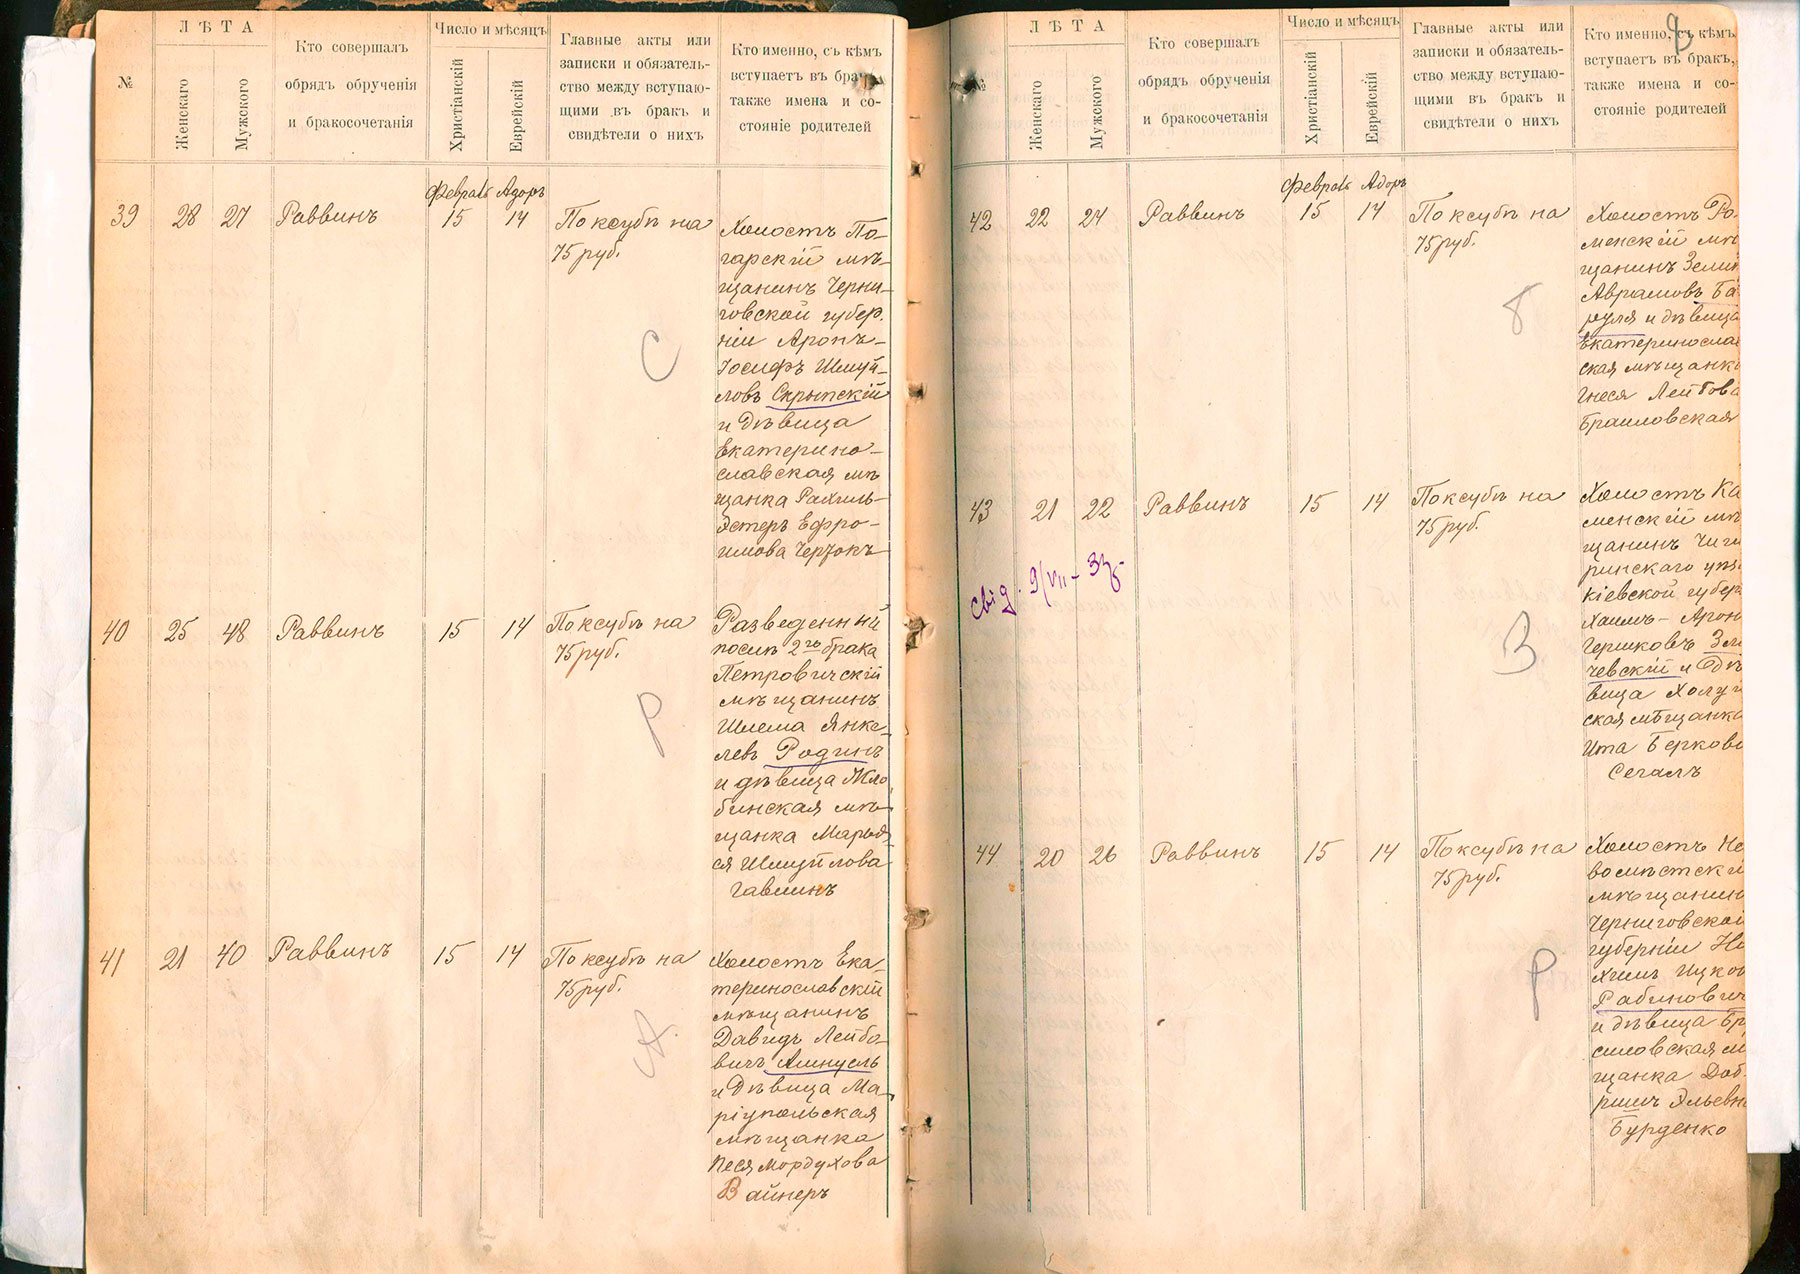 №
ЛѢТА
Женскаго
Мужского
Кто совершалъ
обрядъ обрученія
и бракосочетанія
Число и мѣсяцъ
Христіанскій
Еврейскій
Главные акты или
записки и обязатель-
ство между вступаю-
щими въ бракъ и
свидѣтели о нихъ
Кто именно, съ кѣмъ
вступаетъ въ
также имена и со-
стояніе родителей
Февраль Адоръ
39 28 27 Раввинъ 15 14 По ксубѣ на
75 руб.
Холостъ По-
гарскій мѣ-
щанинъ Черни-
говской губер.
ніи Аронъ-
Іосифъ Шмуй-
ловъ Скрыпскій
и дѣвица
Екатерино-
славская мѣ
щанка Рахиль-
Эстеръ Ефро-
имова Чернокъ
40 25 48 Раввинъ 15 14 По ксубѣ на
75 руб.
Разведенный
послѣ 2го брака
Петровичскій
мѣщанинъ
Шлема Янке-
левъ Родинъ
и дѣвица Жло
бинская мѣ-
щанка Марья-
ся Шмуйлова
Гавшинъ
41 21 40 Раввинъ 15 14 По ксубѣ на
75 руб.
Холостъ Ека-
теринославскій
мѣщанинъ
Давидъ Лейбо-
вичъ
и дѣвица Ма-
ріупольская
мѣщанка
Песя Мордухова
Вайнеръ
С
Р
А
9
№
ЛѢТА
Женскаго
Мужского
Кто совершалъ
обрядъ обрученія
и бракосочетанія
Число и мѣсяцъ
Христіанскій
Еврейскій
Главные акты или
записки и обязатель-
ство между вступаю-
щими въ бракъ и
свидѣтели о нихъ
Кто именно, съ кѣмъ
вступаетъ въ бракъ,
также имена и со-
стояніе родителей
Февраль Адоръ
42 22 24 Раввинъ 15 14 По ксубѣ на
75 руб.
Холостъ Ро-
менскій мѣ
щанинъ
Авраамовъ Ба
руля и дѣвица
Екатериносла
ская мѣщанка
Гнеся Лейбова
Браиловская
43 21 22 Раввинъ 15 14 По ксубѣ на
75 руб.
свід. 9/VII-
Холостъ Ка
менскій мѣ
щанинъ Чиги
ринскаго уѣз
Кіевской губер
Хаимъ-Арон
Гершковъ Зла
чевскій и дѣ
вица
ская мѣщанка
Ита Беркова
Сегалъ
44 20 26 Раввинъ 15 14 По ксубѣ на
75 руб.
Холостъ Но
вомѣстскі
мѣщанин
Черниговской
губерніи Но
химъ Ицков
Рабинович
и дѣвица Бр
силовская м
щанка Доб-
ришъ Эльевн
Бурденко
Б
З
Р